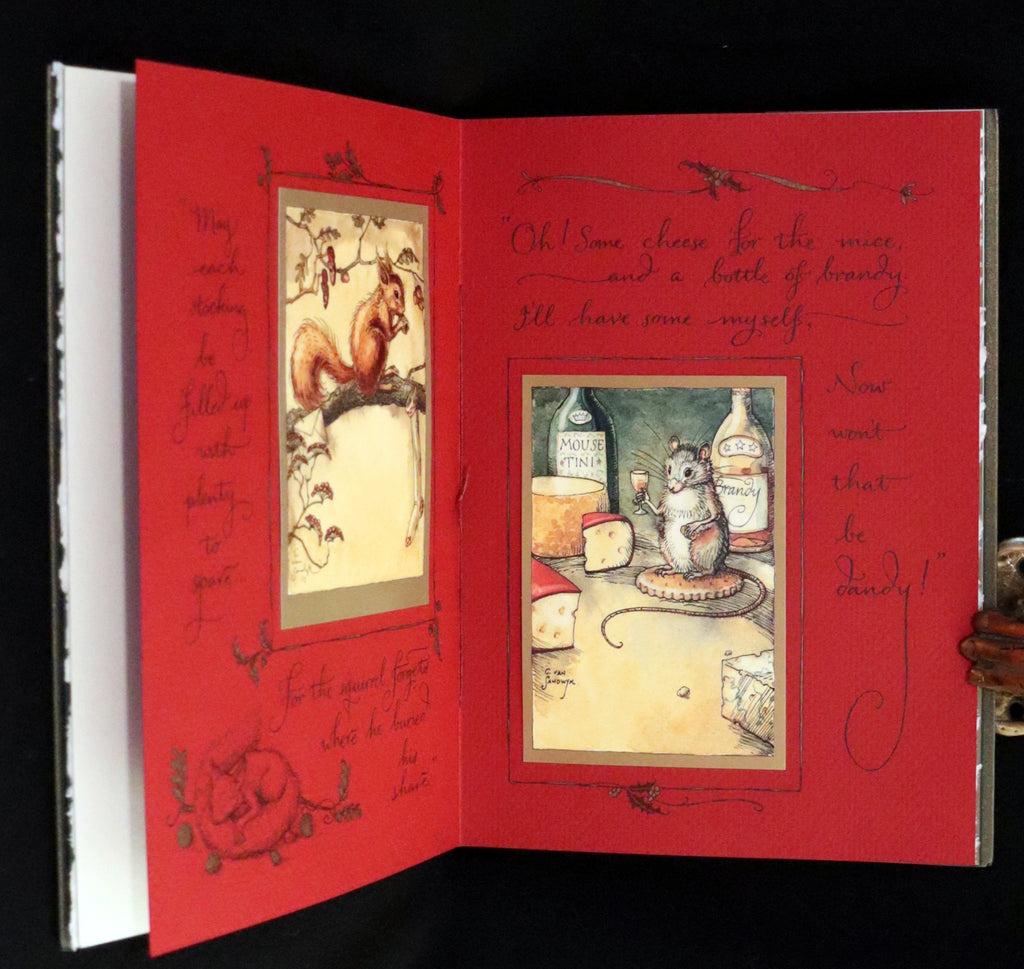 "May
each
stocking
be
filled up
with
plenty
to
spare...
for the squirrel forgets
where he buried
his
share."
"Oh! Some cheese for the mice,
and a bottle of brandy.
I'll have some myself,
Now
won't
that
be
dandy!"
MOUSE
TINI
Brandy
C. VAN
SANDWYK